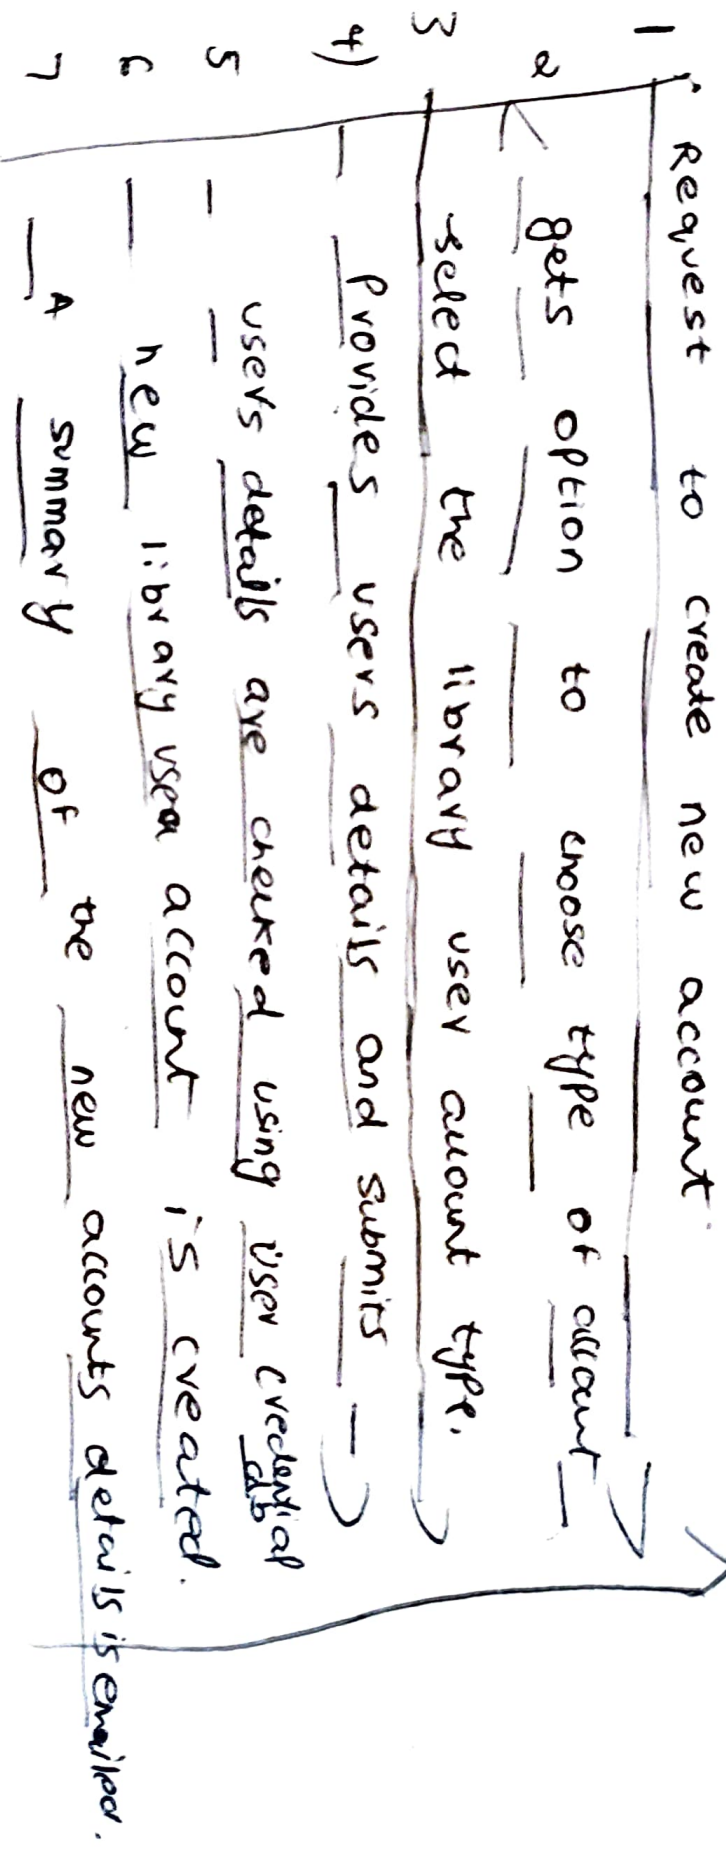 1 Request to create new account.
2 gets option to choose type of account
3 select the library user account type.
4) Provides users details and submits
5 users details are checked using user credential db
6 new library user account is created.
7 A summary of the new accounts details is emailed.